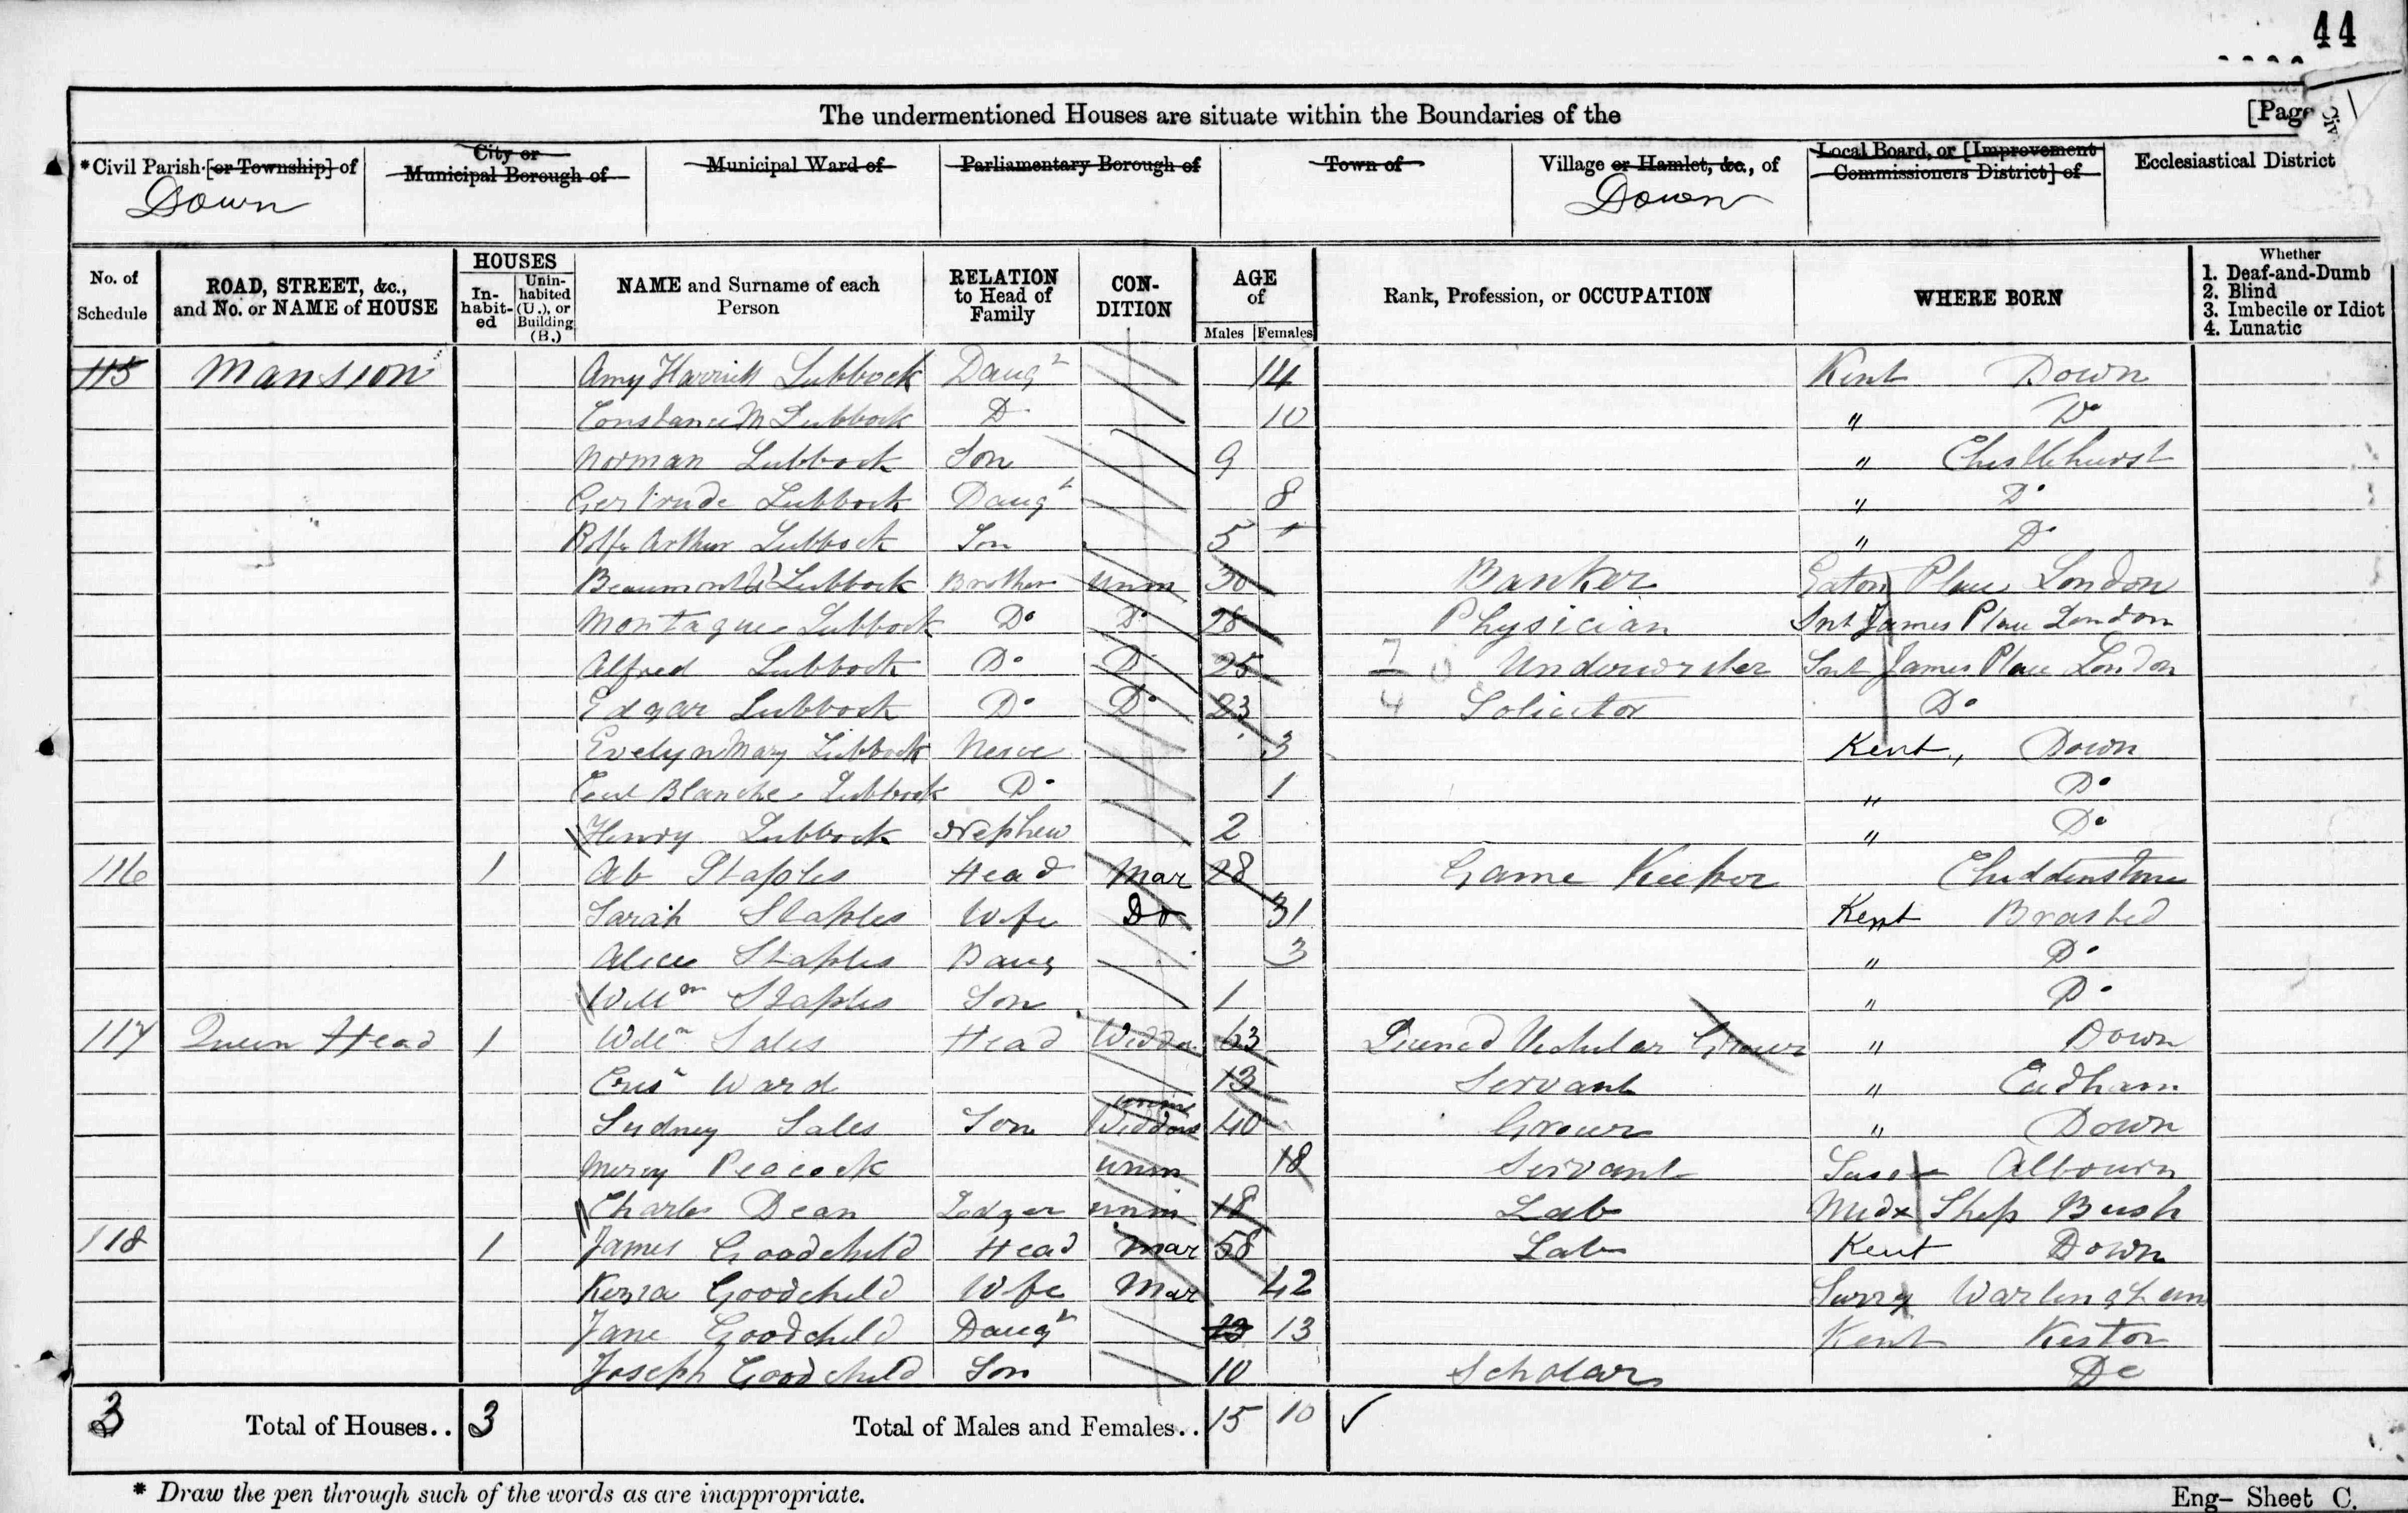 44
The undermentioned Houses are situate within the Boundaries of the [Page
*Civil Parish [or Township] of Down
City or Municipal Borough of
Municipal Ward of
Parliamentary Borough of
Town of
Village or Hamlet, &c., of Down
Local Board, or [Improvement Commissioners District] of
Ecclesiastical District
No. of Schedule
ROAD, STREET, &c., and No. or NAME of HOUSE
HOUSES
In-habit-ed
Unin-habited (U.), or Building (B.)
NAME and Surname of each Person
RELATION to Head of Family
CON-DITION
AGE of
Males Females
Rank, Profession, or OCCUPATION
WHERE BORN
Whether
1. Deaf-and-Dumb
2. Blind
3. Imbecile or Idiot
4. Lunatic
115 Mansion Amy Harriett Lubbock Daugr 14 Kent Down
Constance M Lubbock Do 10 " Do
Norman Lubbock Son 9 " Chislehurst
Gertrude Lubbock Daugr 8 " Do
Rolfe Arthur Lubbock Son 5 " Do
Beaumont Lubbock Brother Unm 30 Banker Eaton Place London
Montague Lubbock Do Do 28 Physician Snt James Place London
Alfred Lubbock Do Do 25 Underwriter Snt James Place London
Edgar Lubbock Do Do 23 Solicitor Do
Evelyn Mary Lubbock Neice 3 Kent, Down
Blanche Lubbock Do 1 " Do
Henry Lubbock Nephew 2 " Do
116 1 Ab Staples Head Mar 28 Game Keeper Chiddenstone
Sarah Staples Wife Do 31 Kent Brasted
Alice Staples Daug 3 " Do
Willm Staples Son 1 " Do
117 Queen Head 1 Willm Sales Head Widdr 63 Licenced Victular Grocer " Down
Ward 13 Servant " Cudham
Sydney Sales Son Unm 40 Grocer " Down
Mercy Peacock unm 18 Servant Albourn
Charles Dean Lodger unm 18 Lab Midx Shep Bush
118 1 James Goodchild Head Mar 58 Lab Kent Down
Kezra Goodchild Wife Mar 42 Surry Warlingham
Jane Goodchild Daugr 13 Kent Keston
Joseph Goodchild Son 10 Scholar Do
3 Total of Houses.. 3 Total of Males and Females.. 15 10 ✓
* Draw the pen through such of the words as are inappropriate.
Eng– Sheet C.